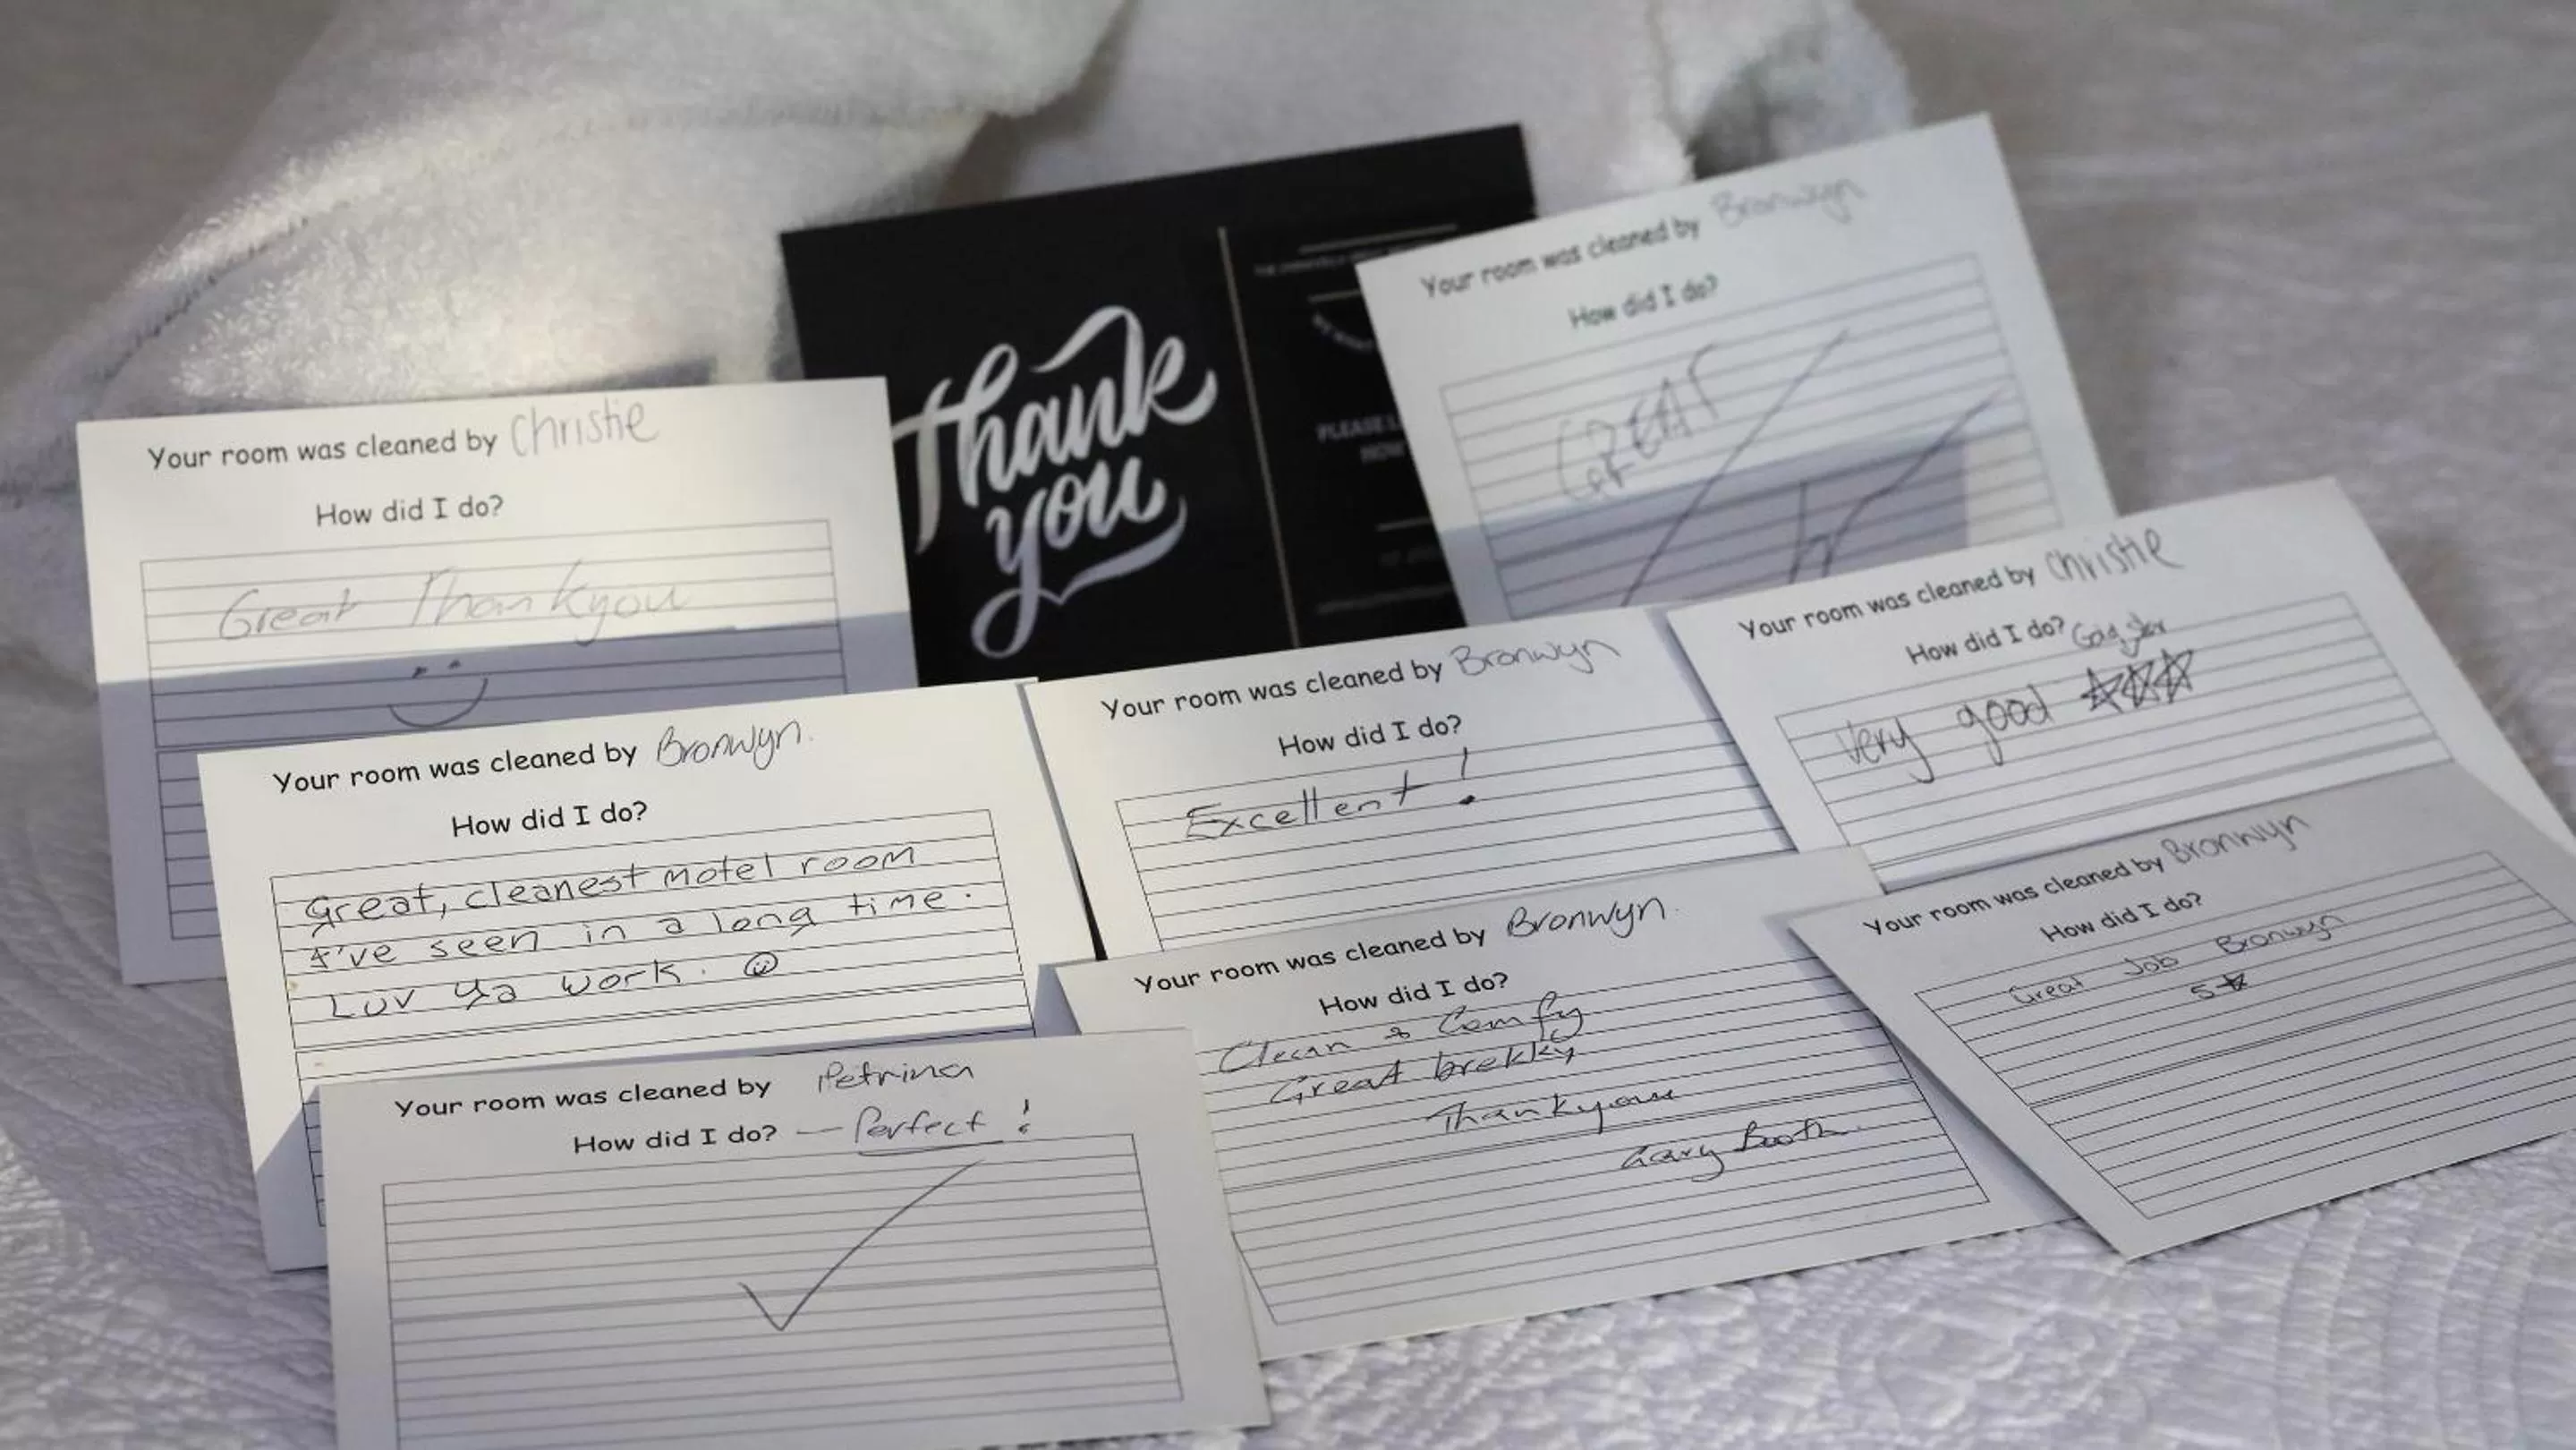 Thank
you
PLEASE
Your room was cleaned by Bronwyn
How did I do?
GREAT
Your room was cleaned by Christie
How did I do?
Great Thankyou
Your room was cleaned by Christie
How did I do? Gold Star
Very good
Your room was cleaned by Bronwyn
How did I do?
Excellent!
Your room was cleaned by Bronwyn.
How did I do?
Great, cleanest motel room
I've seen in a long time.
Luv ya work.
Your room was cleaned by Bronwyn
How did I do?
Great Job Bronwyn
5★
Your room was cleaned by Bronwyn.
How did I do?
Clean & Comfy
Great brekky
Thankyou
Gary Booth.
Your room was cleaned by Petrina
How did I do? — Perfect!